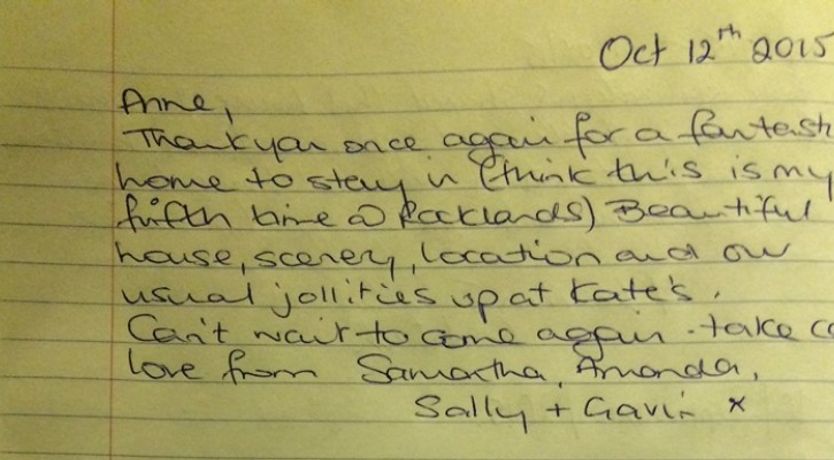 Oct 12th 2015
Anne,
Thank you once again for a fantasti
home to stay in (think this is my
fifth time @ Rocklands) Beautiful
house, scenery, location and our
usual jollities up at Kate's.
Can't wait to come again - take ca
love from Samantha, Amanda,
Sally + Gavin x